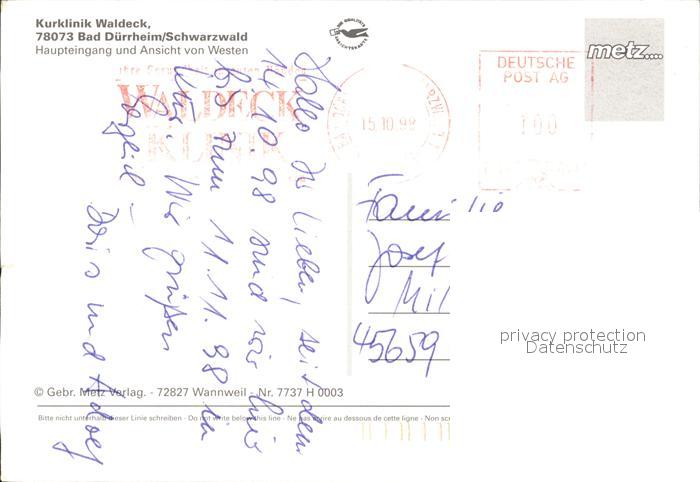 Kurklinik Waldeck,
78073 Bad Dürrheim/Schwarzwald
Haupteingang und Ansicht von Westen
metz....
DEUTSCHE
POST AG
100
15.10.98
WALDECK
KLINIK
Hallo Ihr Lieben, seit dem
14.10.98 sind wir hier
bis zum 11.11.98 in
Kur. Wir grüßen
herzlich –
Doris und Adolf
Familie
Josef
Mil
45659
privacy protection
Datenschutz
© Gebr. Metz Verlag. - 72827 Wannweil - Nr. 7737 H 0003
Bitte nicht unterhalb dieser Linie schreiben - Do not write below this line - Ne pas écrire au dessous de cette ligne - Non sc